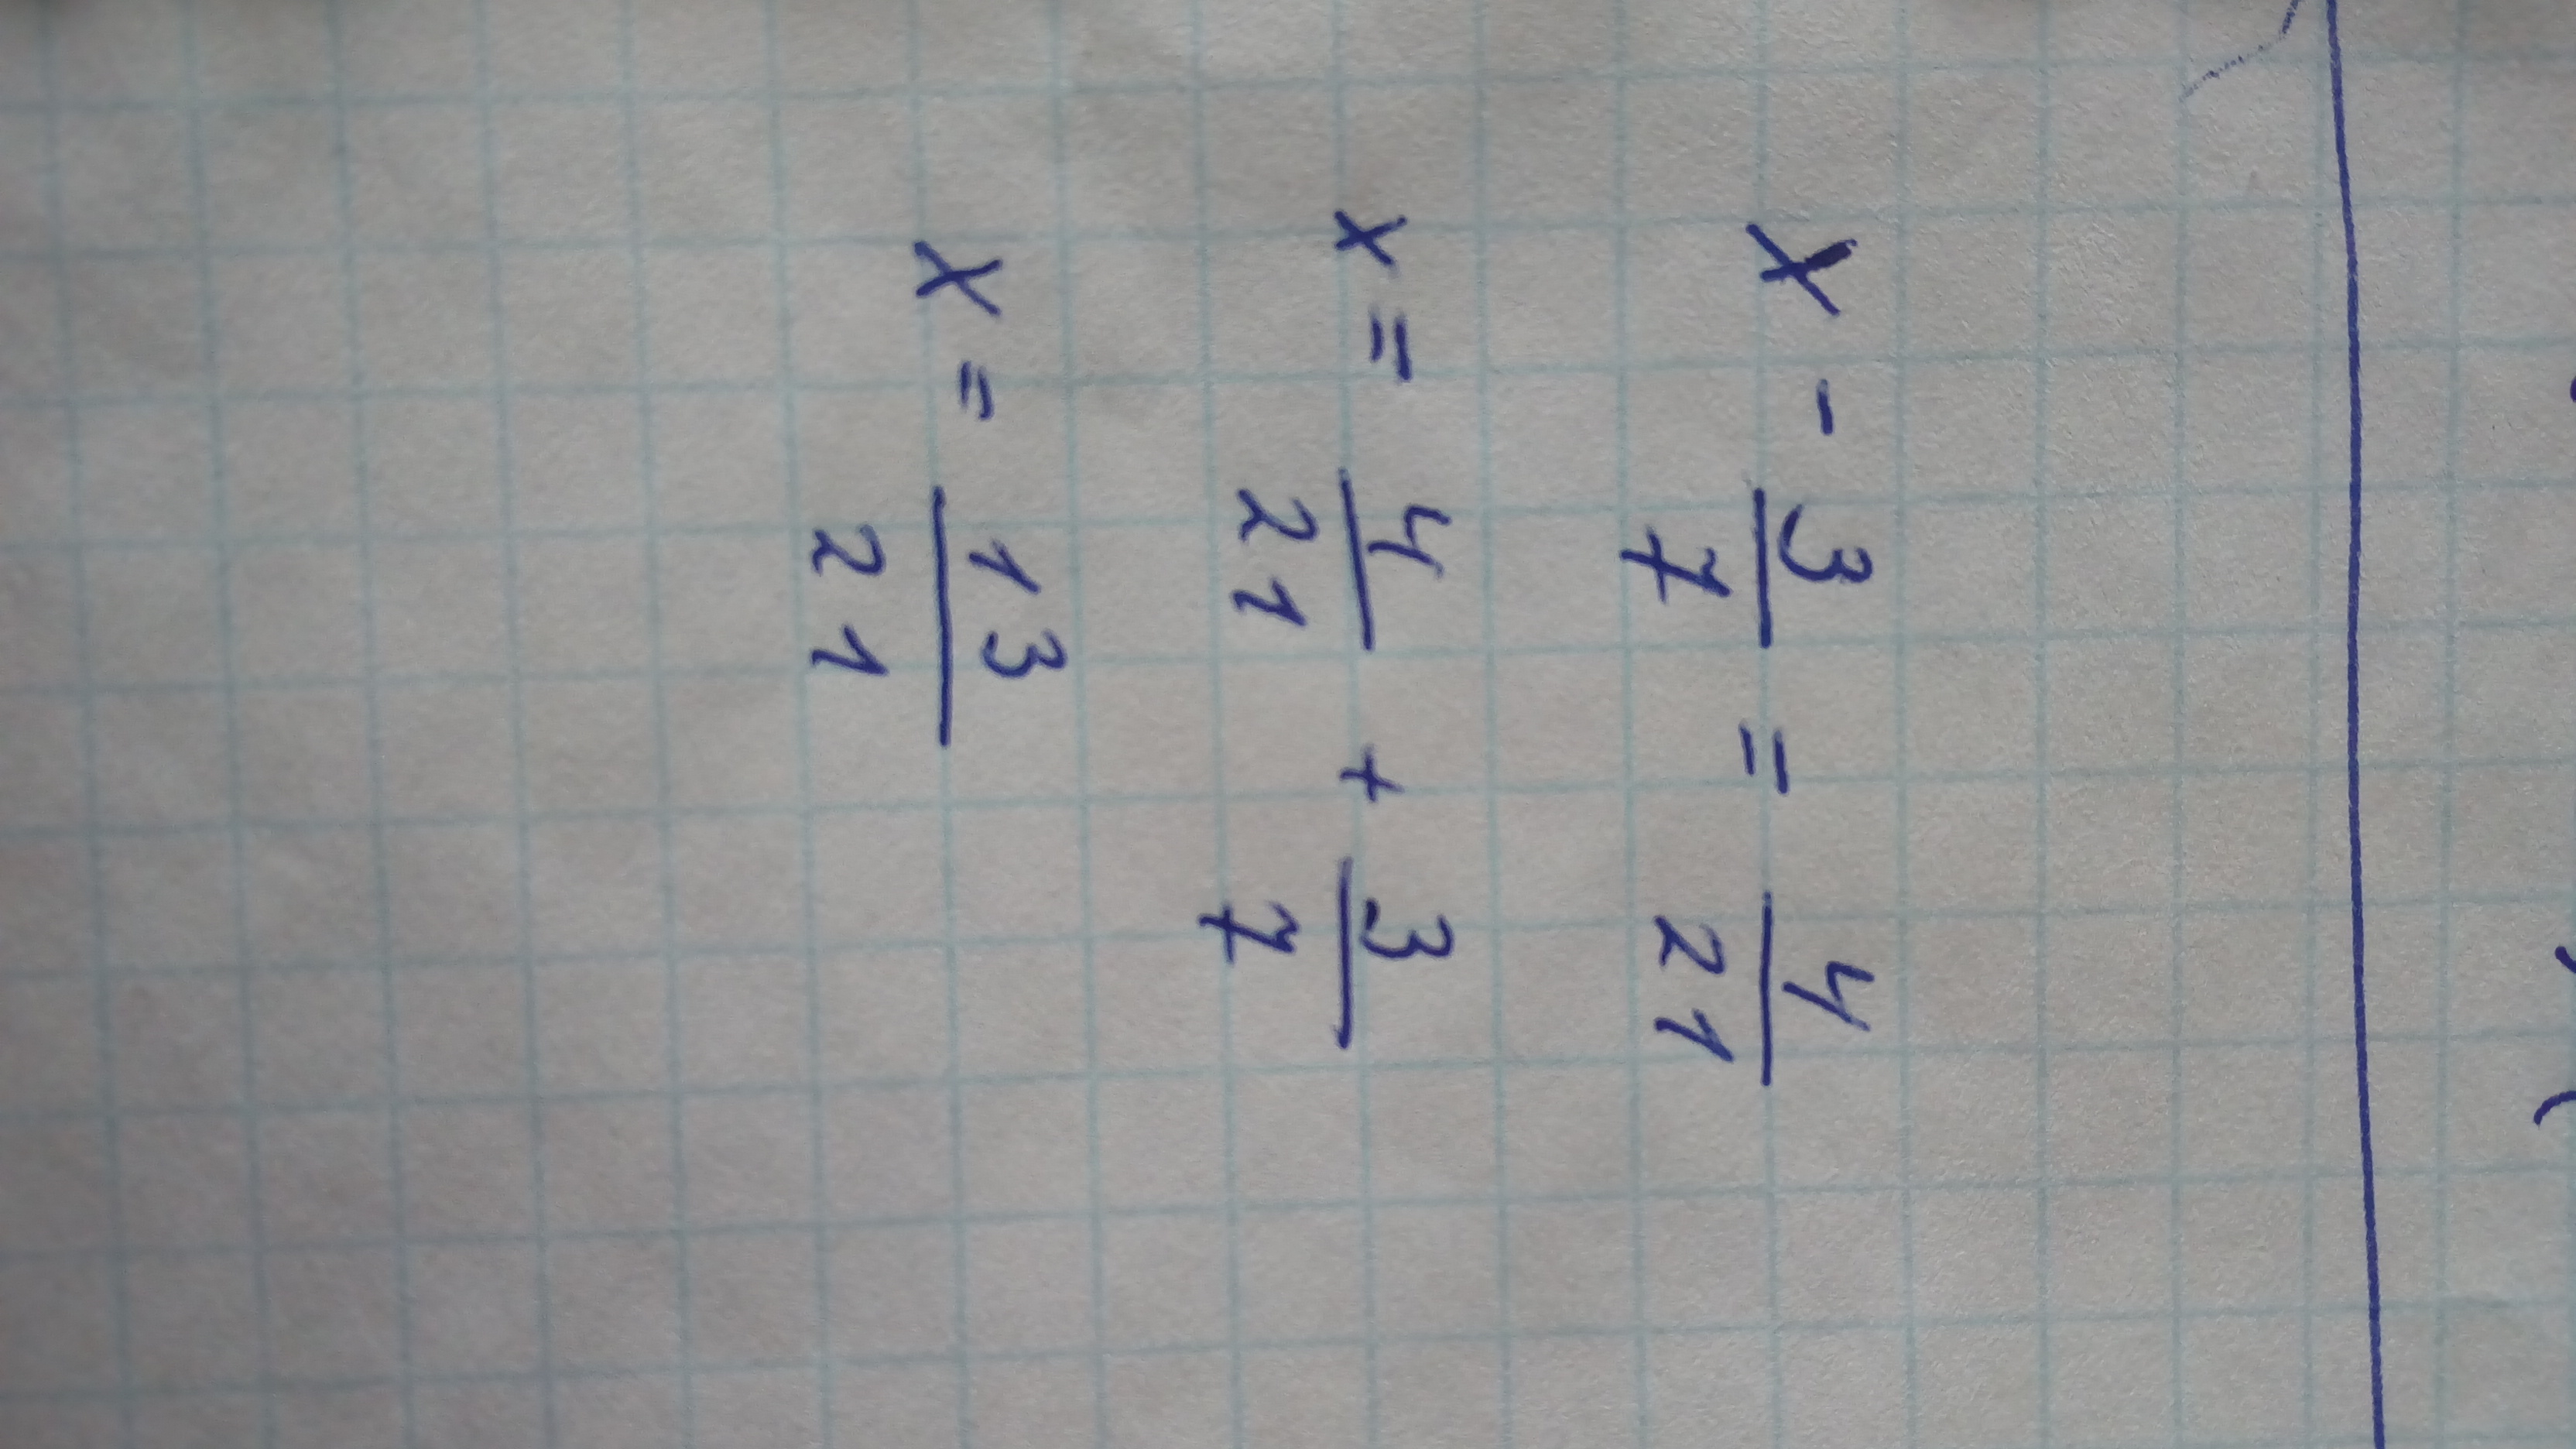 x - 3/7 = 4/21
x = 4/21 + 3/7
x = 13/21